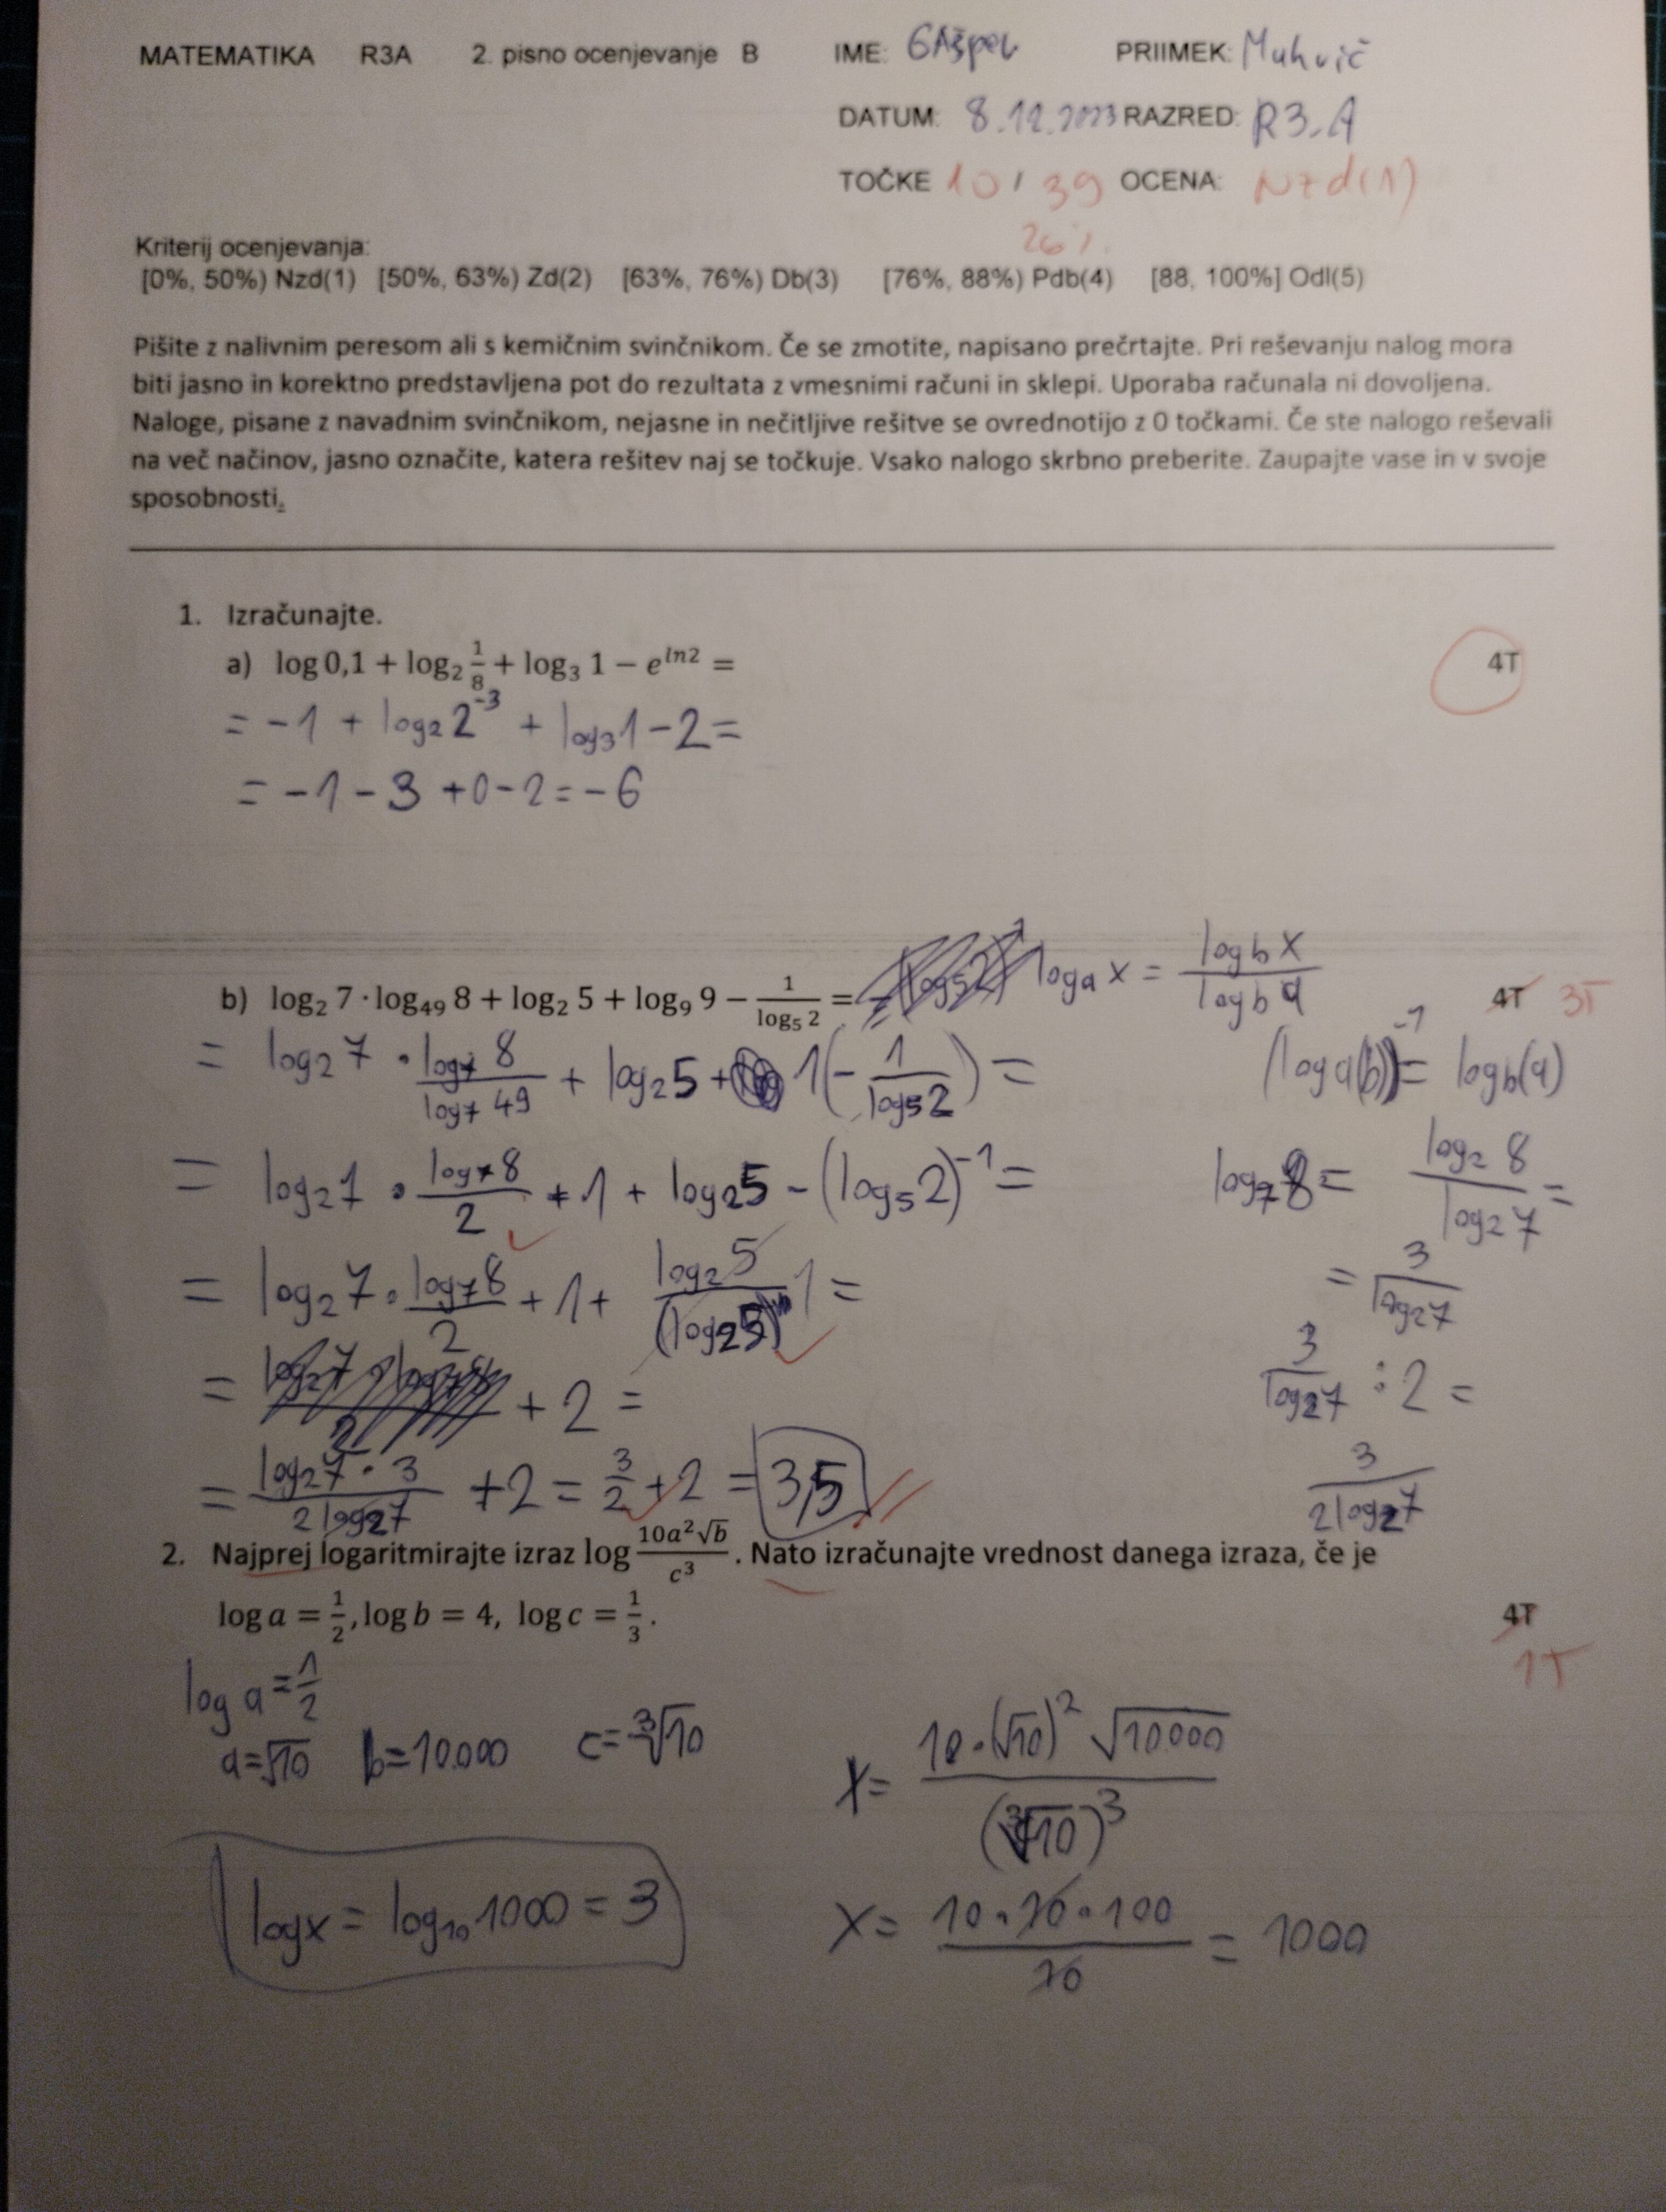 MATEMATIKA R3A 2. pisno ocenjevanje B IME: GAšpeL PRIIMEK: Muhvič
DATUM: 8.12.2023 RAZRED: R3.A
TOČKE 10 / 39 OCENA: Nzd(1)
26%
Kriterij ocenjevanja:
[0%, 50%) Nzd(1) [50%, 63%) Zd(2) [63%, 76%) Db(3) [76%, 88%) Pdb(4) [88, 100%] Odl(5)
Pišite z nalivnim peresom ali s kemičnim svinčnikom. Če se zmotite, napisano prečrtajte. Pri reševanju nalog mora
biti jasno in korektno predstavljena pot do rezultata z vmesnimi računi in sklepi. Uporaba računala ni dovoljena.
Naloge, pisane z navadnim svinčnikom, nejasne in nečitljive rešitve se ovrednotijo z 0 točkami. Če ste nalogo reševali
na več načinov, jasno označite, katera rešitev naj se točkuje. Vsako nalogo skrbno preberite. Zaupajte vase in v svoje
sposobnosti.
1. Izračunajte.
a) log 0,1 + log₂ 1/8 + log₃ 1 − e^ln2 = 4T
= −1 + log₂ 2⁻³ + log₃ 1 − 2 =
= −1 − 3 + 0 − 2 = −6
b) log₂ 7 · log₄₉ 8 + log₂ 5 + log₉ 9 − 1/(log₅ 2) = logₐ x = (log_b x)/(log_b a) 4T 3T
= log₂ 7 · (log₇ 8)/(log₇ 49) + log₂ 5 + 1 (− 1/(log₅ 2)) = (logₐ(b))⁻¹ = log_b(a)
= log₂ 7 · (log₇ 8)/2 + 1 + log₂ 5 − (log₅ 2)⁻¹ = log₇ 8 = (log₂ 8)/(log₂ 7) =
= log₂ 7 · (log₇ 8)/2 + 1 + (log₂ 5)/(log₂ 5) 1 = = 3/(log₂ 7)
= + 2 = 3/(log₂ 7) : 2 =
= (log₂ 7 · 3)/(2 log₂ 7) + 2 = 3/2 + 2 = 3,5 3/(2 log₂ 7)
2. Najprej logaritmirajte izraz log (10a²√b)/c³ . Nato izračunajte vrednost danega izraza, če je
log a = 1/2, log b = 4, log c = 1/3 . 4T
1T
log a = 1/2
a = √10 b = 10.000 c = ³√10 x = (10 · (√10)² √10000)/(³√10)³
log x = log₁₀ 1000 = 3 x = (10 · 10 · 100)/10 = 1000